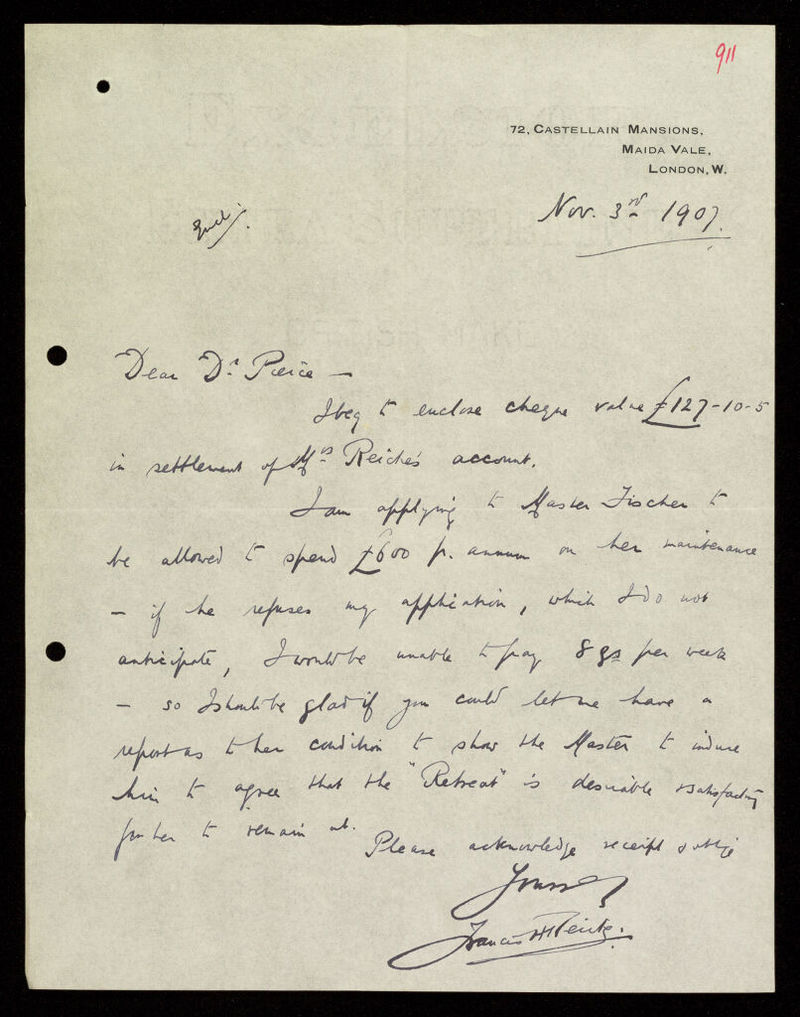 911
72, CASTELLAIN MANSIONS,
MAIDA VALE,
LONDON, W.
Nov. 3rd 1907.
Dear Dr. Pierce —
I beg to enclose cheque value £127-10-5
in settlement of Mrs Reiche's account.
I am applying to Master Fischer to
be allowed to spend £600 pr. annum on her maintenance
— if he refuses my application, which I do not
anticipate, I would be unable to pay 8 gs per week
— so I should be glad if you could let me have a
report as to her condition to show the Master to induce
him to agree that the "Retreat" is desirable & satisfactory
for her to remain at.
Please acknowledge receipt & oblige
Yours
Francis H